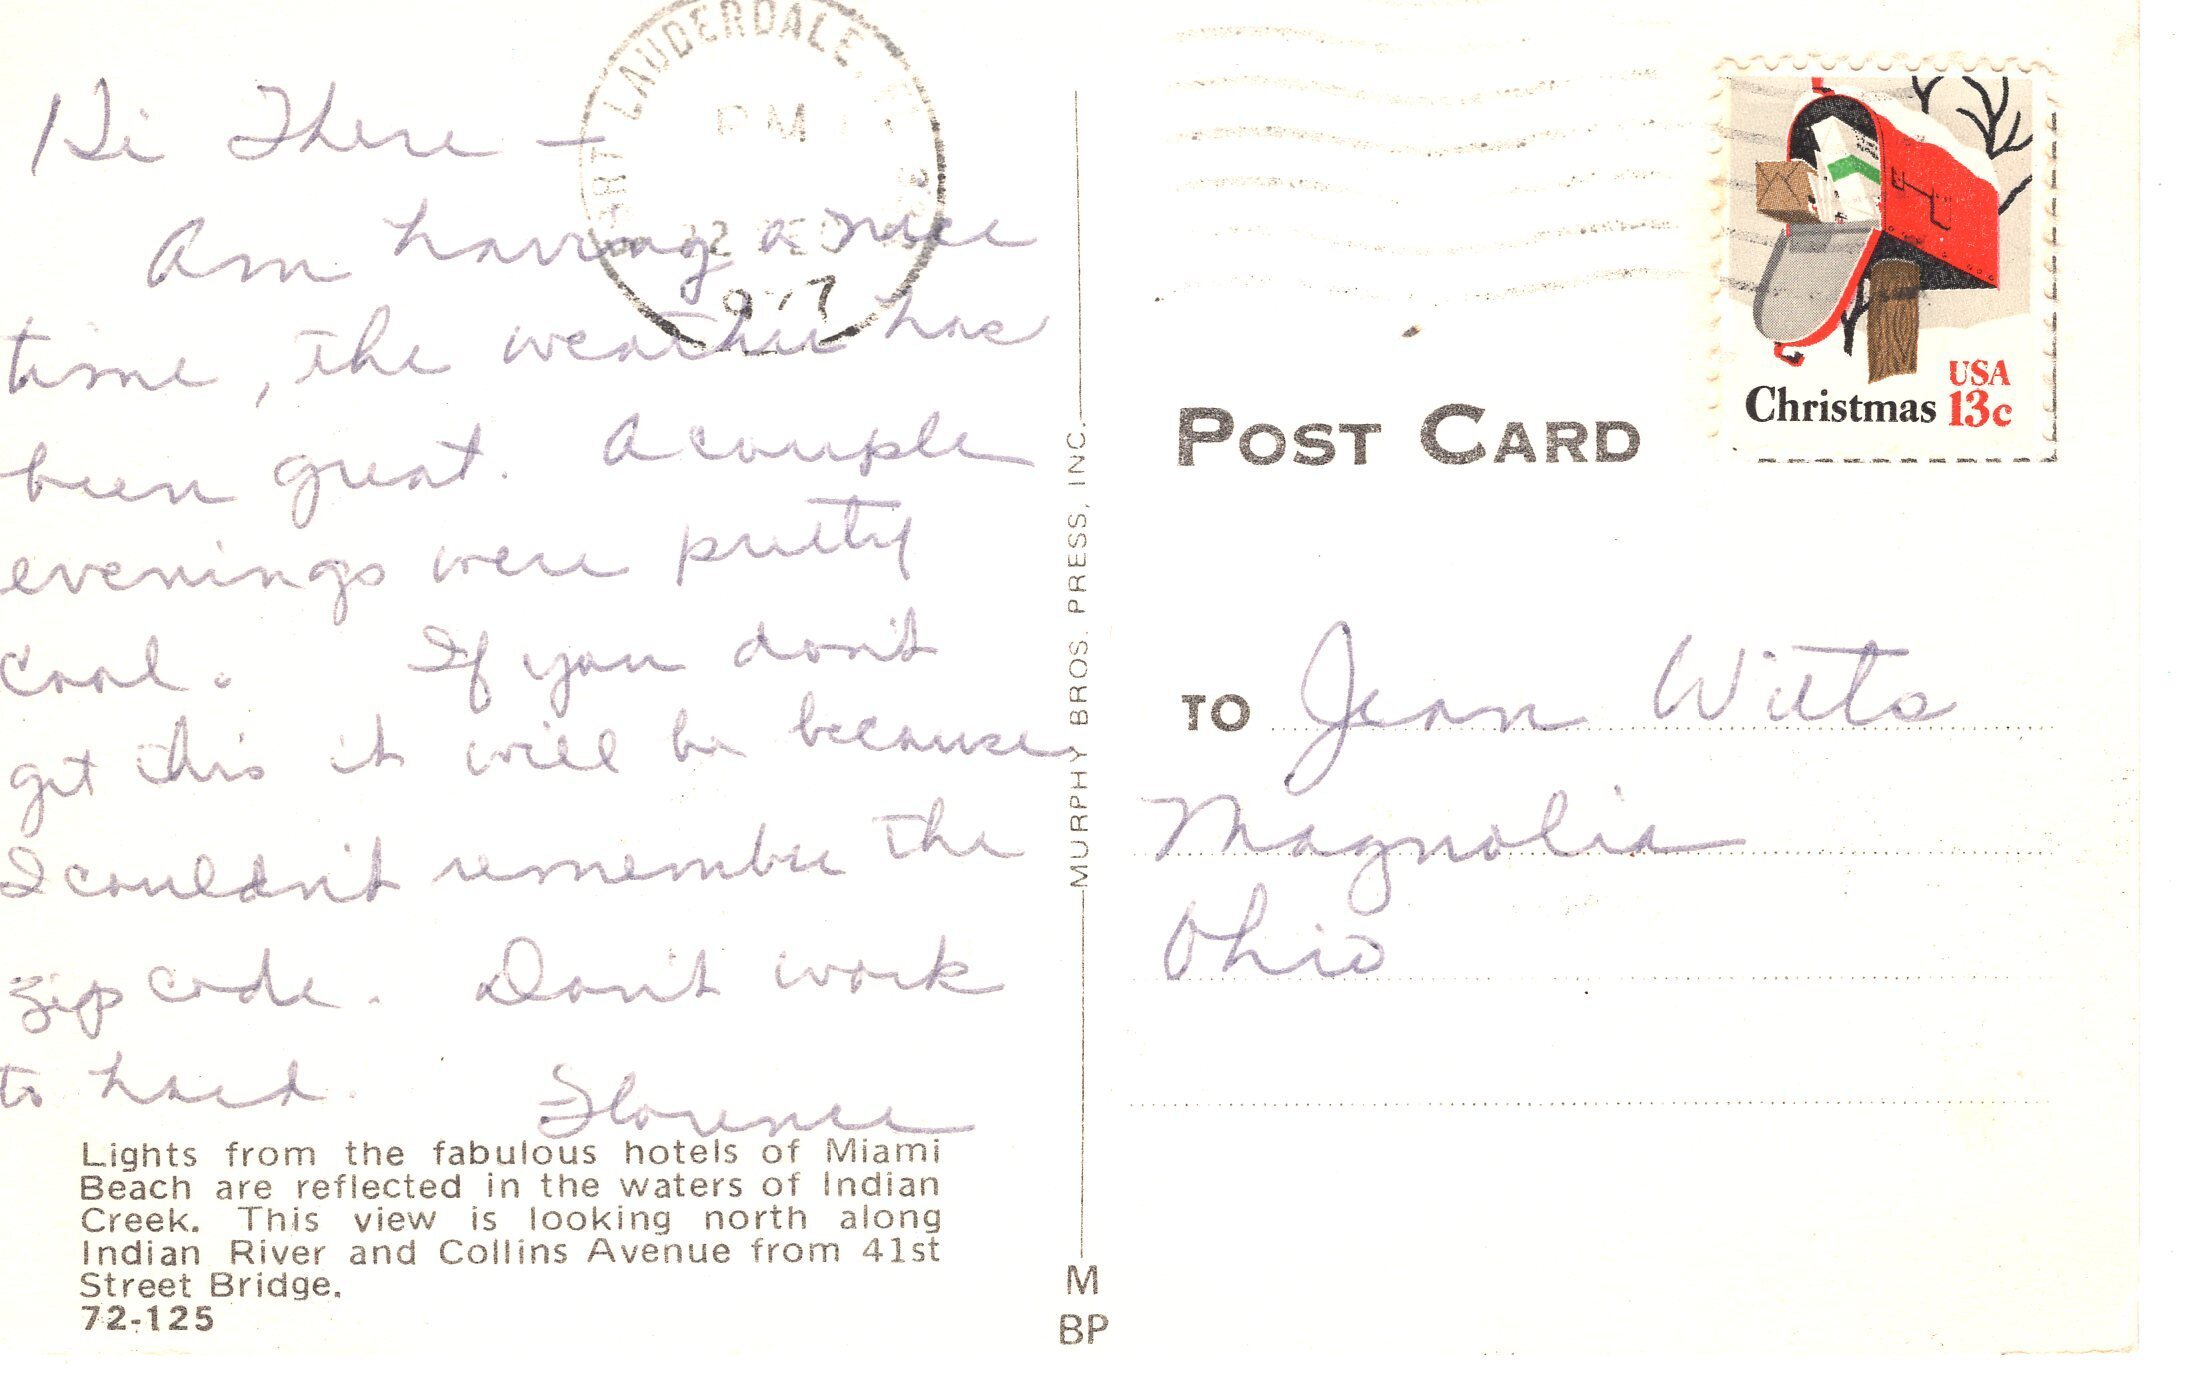 Hi There —
Am having a nice
time, the weather has
been great. A couple
evenings were pretty
cool. If you don't
get this it will be because
I couldn't remember the
zip code. Don't work
to hard. Florence
Lights from the fabulous hotels of Miami
Beach are reflected in the waters of Indian
Creek. This view is looking north along
Indian River and Collins Avenue from 41st
Street Bridge.
72-125
LAUDERDALE
PM
MURPHY BROS. PRESS, INC.
M
BP
Christmas USA 13c
POST CARD
TO Jean Witts
Magnolia
Ohio